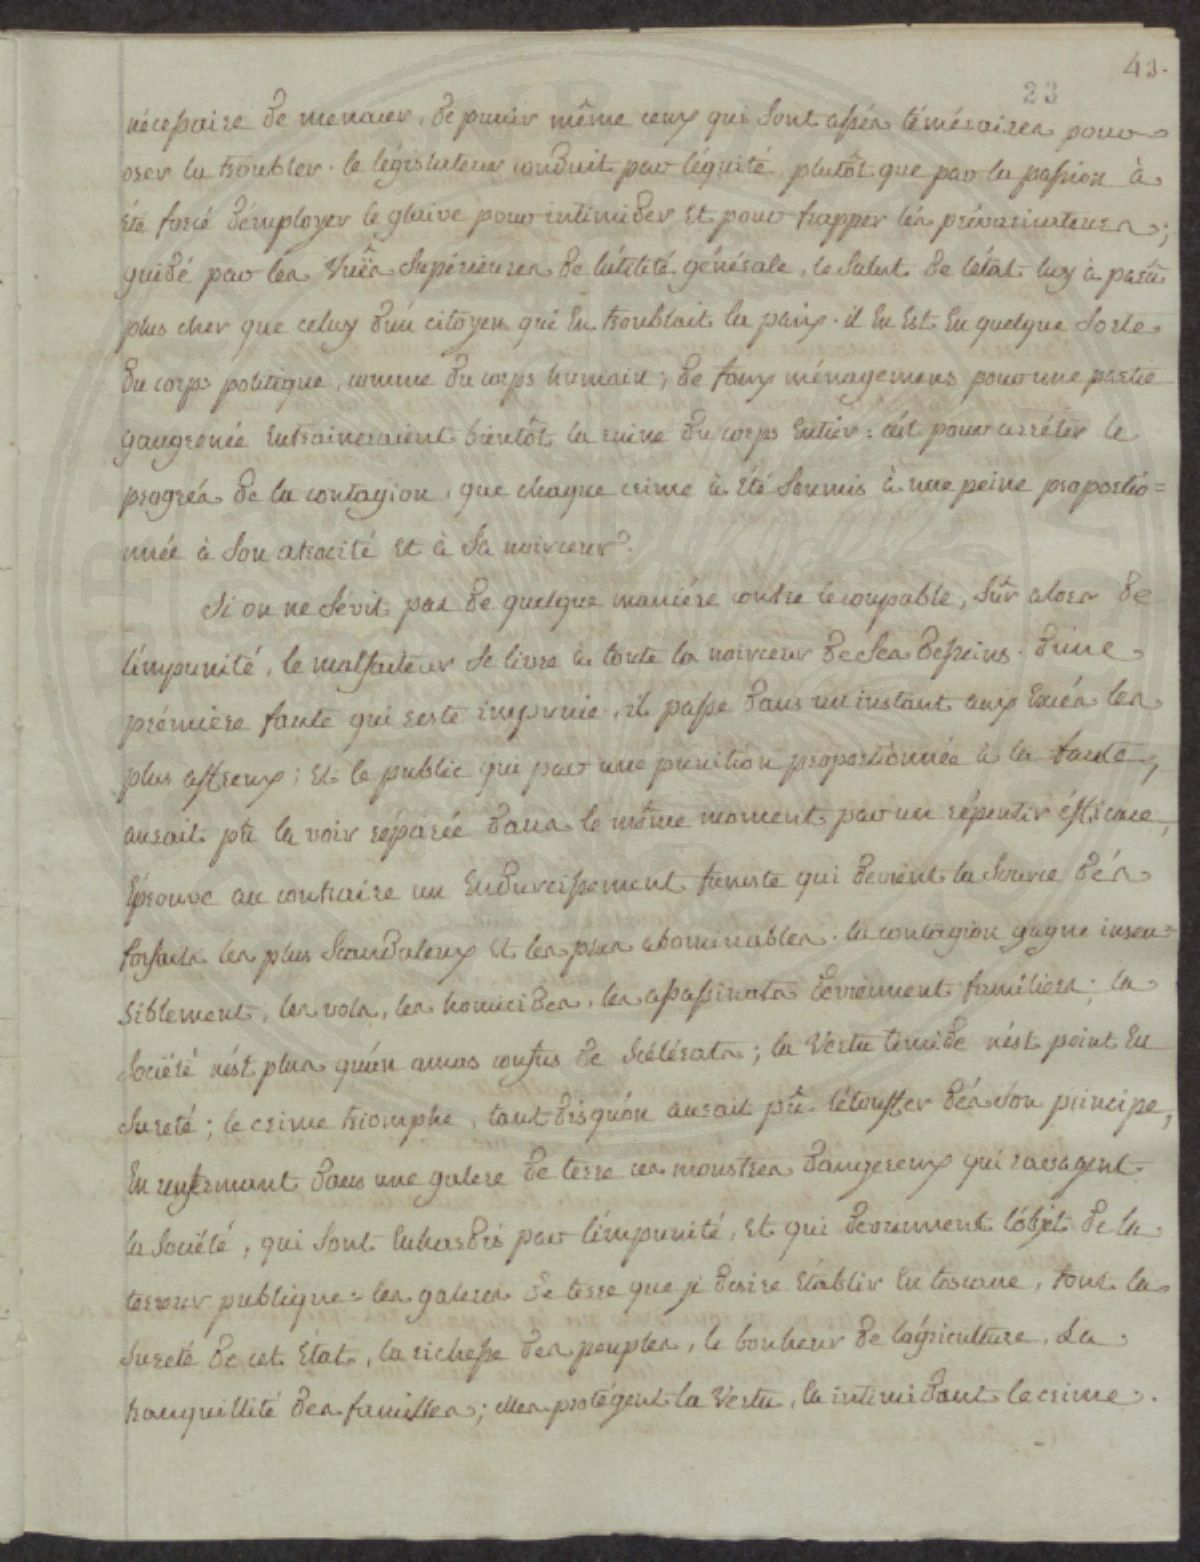 43.
23
nécessaire de menacer, de punir même ceux qui sont assés téméraires pour
oser la troubler. le législateur conduit par l'équité plutôt que par la passion à
été forcé d'employer le glaive pour intimider et pour frapper les prévaricateurs;
guidé par les vuës supérieures de l'utilité générale, le salut de l'état luy à parû
plus cher que celuy d'un citoyen qui en troublait la paix. il en est en quelque sorte
du corps politique, comme du corps humain; de faux ménagemens pour une partie
gangrenée entraineraient bientôt la ruine du corps entier: c'est pour arrêter le
progrés de la contagion, que chaque crime à été soumis à une peine proportio=
nnée à son atrocité et à sa noirceur.
Si on ne sévit pas de quelque maniére contre le coupable, sûr alors de
l'impunité, le malfaiteur se livre à toute la noirceur de ses desseins. d'une
prémiére faute qui reste impunie, il passe dans un instant aux excés les
plus affreux; et le public qui par une punition proportionnée à la faute,
aurait pû la voir réparée dans le même moment par un répentir éfficace,
éprouve au contraire un endurcissement funeste qui devient la source dés
forfaits les plus scandaleux et les plus abominables. la contagion gagne insen=
siblement, les vols, les homicides, les assassinats deviennent familiers; la
société n'est plus qu'un amas confus de scélérats; la vertu timide n'est point en
sureté; le crime triomphe, tant disqu'on aurait pû l'étouffer dés son principe,
en renfermant dans une galere de terre ces monstres dangereux qui ravagent
la société, qui sont enhardis par l'impunité, et qui deviennent l'objèt de la
terreur publique: les galeres de terre que je desire établir en toscane, font la
sureté de cet état, la richesse des peuples, le bonheur de l'agriculture, la
tranquillité des familles; elles protégent la vertu, en intimidant le crime.